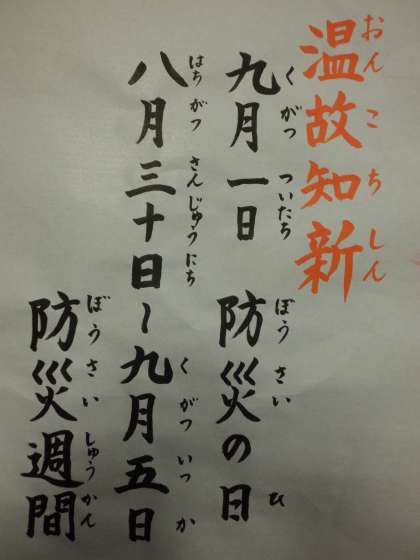 温故知新
おんこちしん
九月一日 防災の日
くがつついたち ぼうさい ひ
八月三十日～九月五日
はちがつさんじゅうにち くがついつか
防災週間
ぼうさいしゅうかん